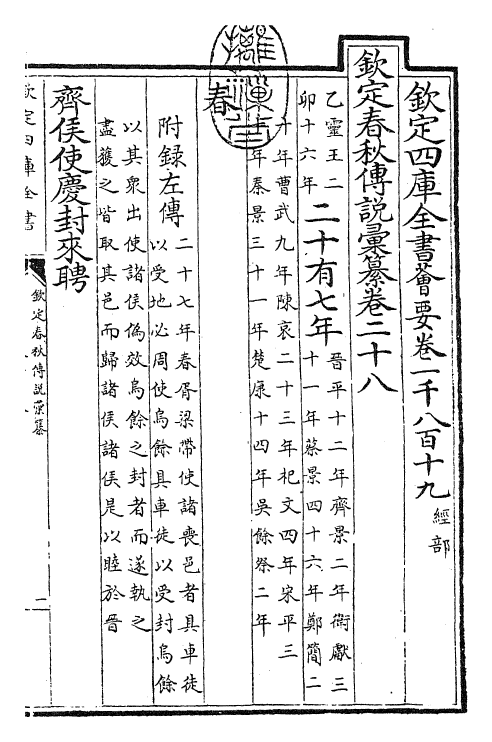 欽定四庫全書薈要卷一千八百十九 經部
欽定春秋傳說彙纂卷二十八
乙靈王二
卯十六年
二十有七年
晉平十二年齊景二年衛獻三
十一年蔡景四十六年鄭簡二
十年曹武九年陳哀二十三年杞文四年宋平三
年秦景三十一年楚康十四年吳餘祭二年
春
附錄左傳
二十七年春胥梁帶使諸喪邑者具車徒
以受地必周使烏餘具車徒以受封烏餘
以其衆出使諸侯偽效烏餘之封者而遂執之
盡獲之皆取其邑而歸諸侯諸侯是以睦於晉
齊侯使慶封來聘
欽定四庫全書
欽定春秋傳說彙纂
二